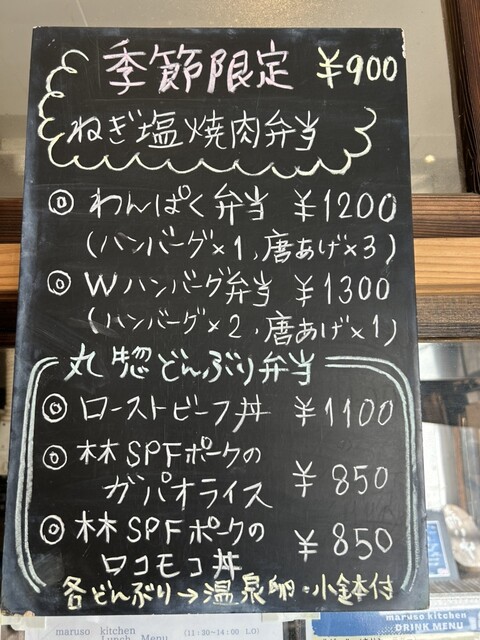 季節限定 ¥900
ねぎ塩焼肉弁当
◎ わんぱく弁当 ¥1200
(ハンバーグ×1,唐あげ×3)
◎ Wハンバーグ弁当 ¥1300
(ハンバーグ×2,唐あげ×1)
丸惣どんぶり弁当
◎ ローストビーフ丼 ¥1100
◎ 林SPFポークの
ガパオライス ¥850
◎ 林SPFポークの
ロコモコ丼 ¥850
各どんぶり→温泉卵・小鉢付
maruso kitchen
Lunch Menu (11:30~14:00 L.O)
maruso kitchen
DRINK MENU